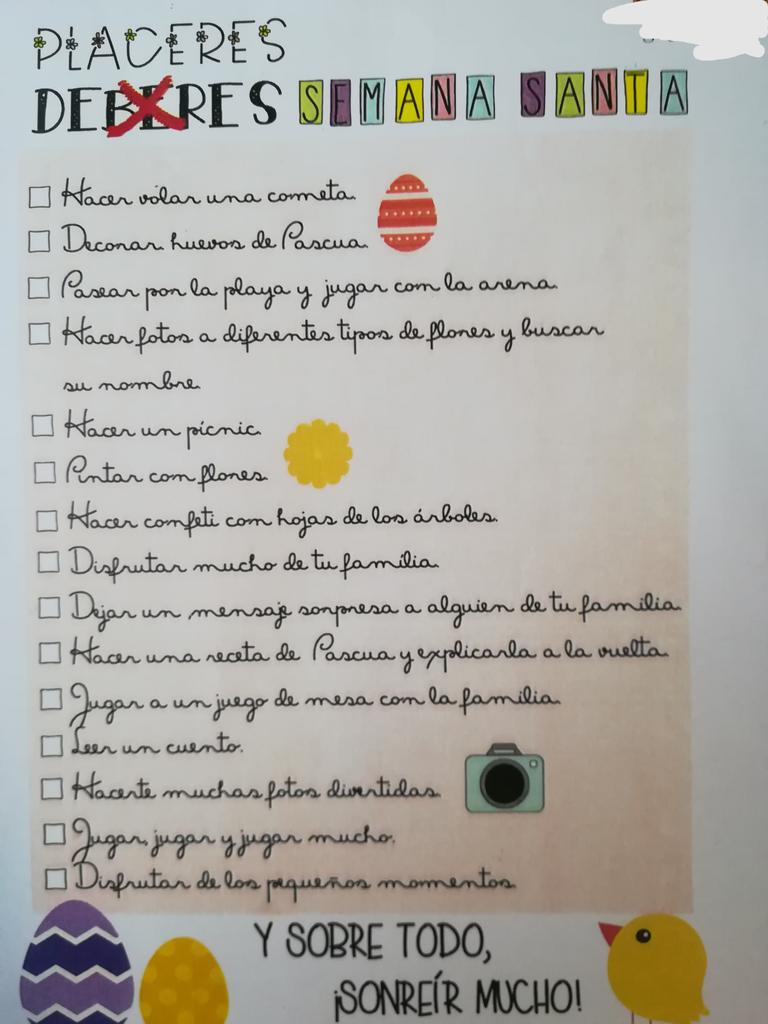 PLACERES
DEBERES SEMANA SANTA
Hacer volar una cometa.
Decorar huevos de Pascua.
Pasear por la playa y jugar con la arena.
Hacer fotos a diferentes tipos de flores y buscar
su nombre.
Hacer un pícnic.
Pintar con flores.
Hacer confeti con hojas de los árboles.
Disfrutar mucho de tu família.
Dejar un mensaje sorpresa a alguien de tu familia.
Hacer una receta de Pascua y explicarla a la vuelta.
Jugar a un juego de mesa con la familia.
Leer un cuento.
Hacerte muchas fotos divertidas.
Jugar, jugar y jugar mucho.
Disfrutar de los pequeños momentos.
Y SOBRE TODO,
¡SONREÍR MUCHO!